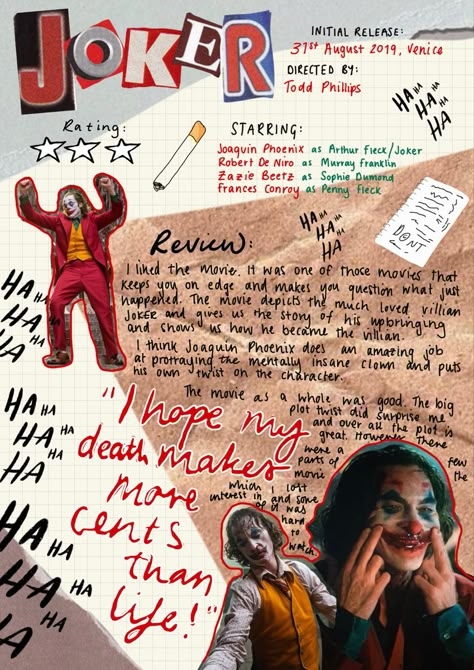 JOKER
INITIAL RELEASE:
31st August 2019, Venice
DIRECTED BY:
Todd Phillips
HA HA
HA HA
HA
Rating:
STARRING:
Joaquin Phoenix as Arthur Fleck/Joker
Robert De Niro as Murray Franklin
Zazie Beetz as Sophie Dumond
Frances Conroy as Penny Fleck
DONT
HA HA
HA HA
HA
Review:
I liked the movie. It was one of those movies that
keeps you on edge and makes you question what just
happened. The movie depicts the much loved villian
JOKER and gives us the story of his upbringing
and shows us how he became the villian.
I think Joaquin Phoenix does an amazing job
at protraying the mentally insane clown and puts
his own twist on the character.
The movie as a whole was good. The big
plot twist did surprise me
and over all the plot is
great. However there
were a few
parts of the
movie
which I lost
interest in and some
of it was
hard
to
watch.
"I hope my
death makes
more
cents
than
life!"
HA HA
HA HA
HA
HA HA
HA HA
HA
HA HA
HA HA
HA HA